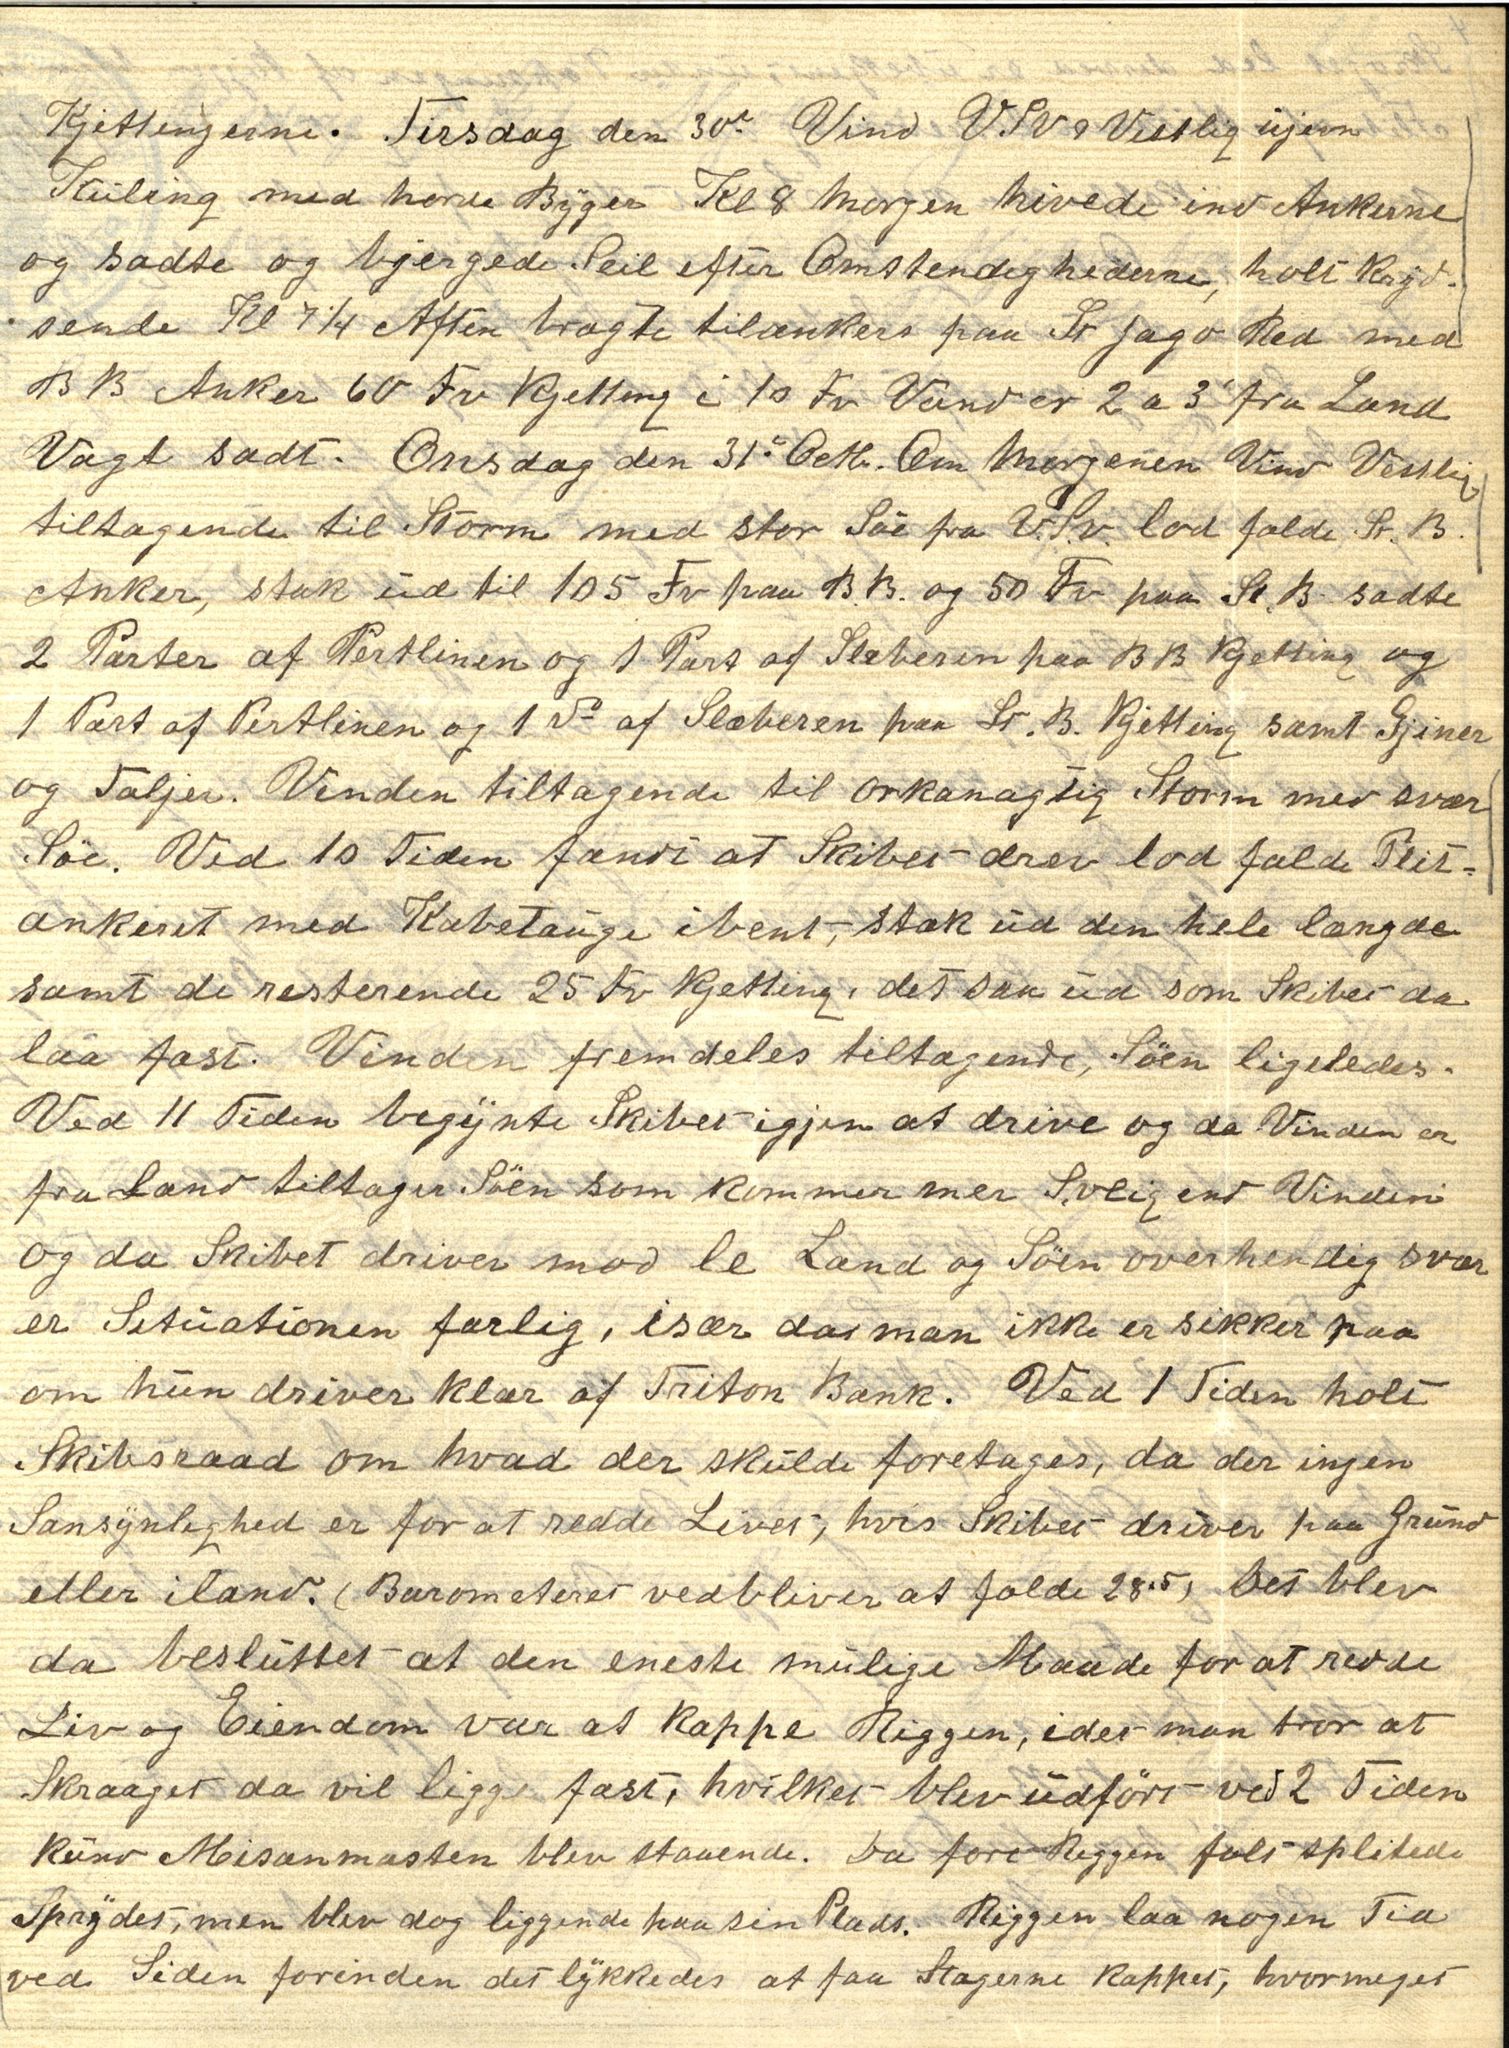 Kjettingerne. Tirsdag den 30te Vind VSV & Vestlig ujevn
Kuling med harde Byger Kl 8 Morgen hivede ind Ankerne
og sadte og bjergede Seil efter Omstendighederne, holt Kryd-
sende Kl 7 1/4 Aften bragte tilankers paa St Jago Red med
BB Anker 60 Fv Kjetting i 10 Fv Vand er 2 a 3' fra Land
Vagt sadt. Onsdag den 31te Octb. Om Morgenen Vind Vestlig
tiltagende til Storm med stor Söe fra V.S.V. lod falde St. B.
Anker, stak üd til 105 Fv paa B.B. og 50 Fv paa St.B. sadte
2 Parter af Pertlinen og 1 Part af Slæberen paa BB Kjetting og
1 Part af Pertlinen og 1 Do af Slæberen paa St. B. Kjetting samt Gjiner
og Taljer. Vinden tiltagende til orkanagtig Storm med svær
Söe. Ved 10 Tiden fandt at Skibet drev lod falde Plit-
ankeret med Kabetaüge ibent, stak üd den hele længde
samt de resterende 25 Fv Kjetting, det saa üd som Skibet da
laa fast. Vinden fremdeles tiltagende, Söen ligeledes.
Ved 11 Tiden begÿnte Skibet igjen at drive og da Vinden er
fra Land tiltager Söen som kommer mer Sveig end Vinden
og da Skibet driver mod le Land og Söen overhendig svær
er Sitüationen farlig, især da man ikke er sikker paa
om hün driver klar af Triton Bank. Ved 1 Tiden holt
Skibsraad om hvad der skülde foretages, da der ingen
Sansÿnlighed er for at redde Livet, hvis Skibet driver paa Gründ
eller iland. (Barometeret vedbliver at falde 28.5) Det blev
da beslüttet at den eneste mülige Maade for at redde
Liv og Eiendom var at kappe Riggen, idet man tror at
Skraaget da vil ligge fast, hvilket blev üdfört ved 2 Tiden
Künd Misanmasten blev staaende. Da fore Riggen falt splitede
Sprÿdet, men blev dog liggende paa sin Plads. Riggen laa nogen Tid
ved Siden forinden det lÿkkedes at faa Stagerne kappet, hvormeget